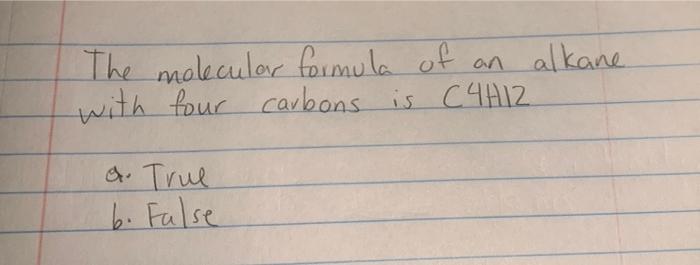 The molecular formula of an alkane
with four carbons is C4H12
a. True
b. False